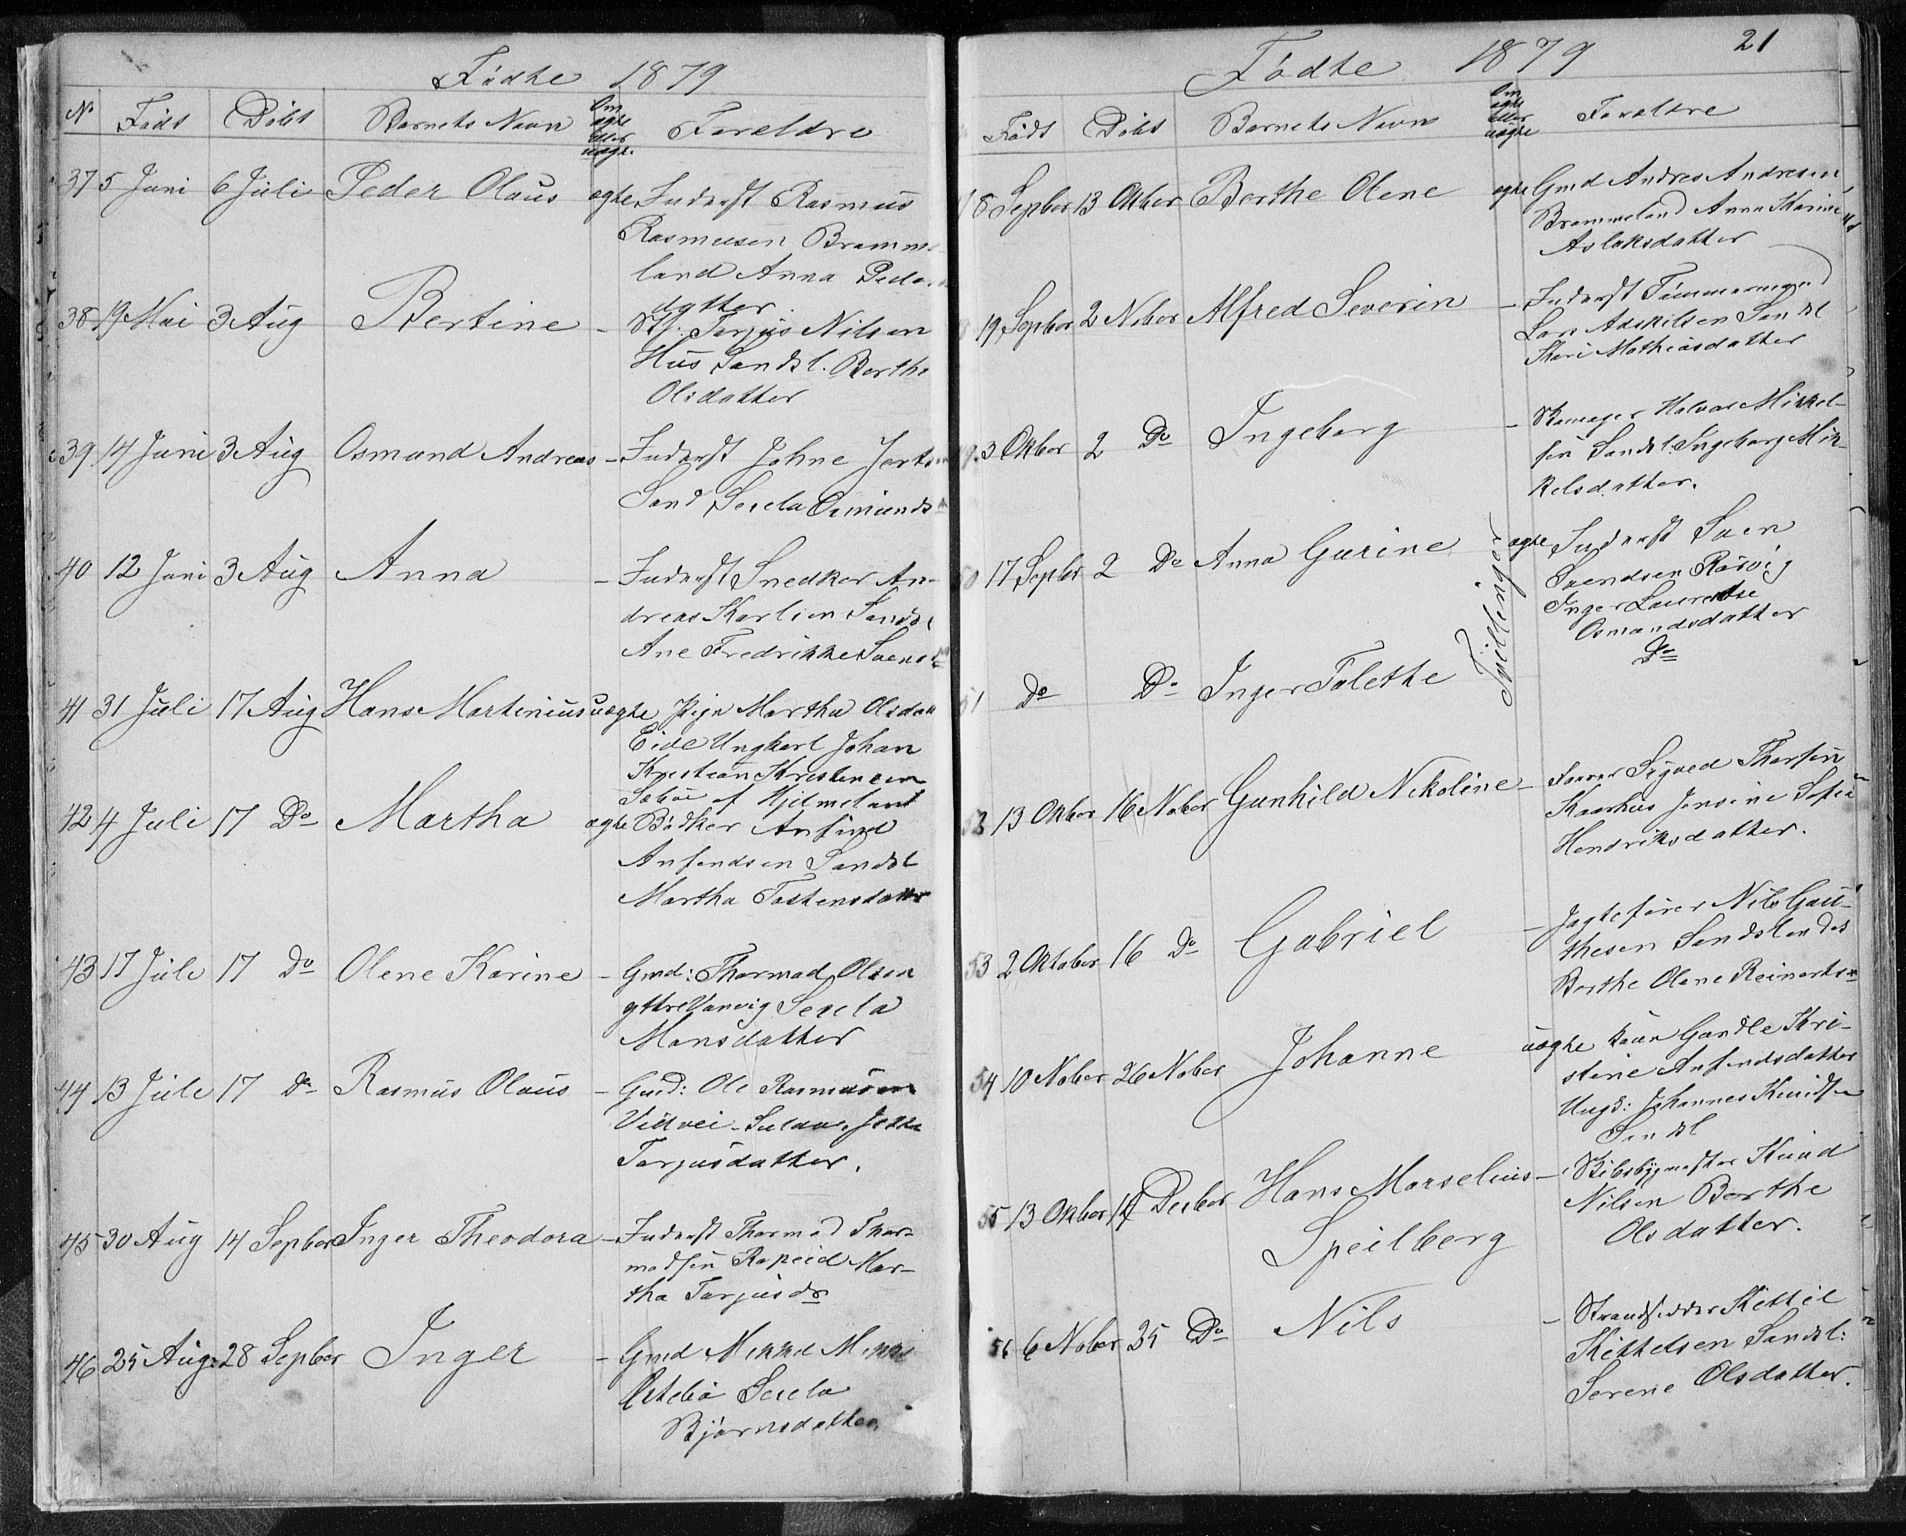 Fødte 1879
No Født Døbt Barnets Navn Om ægte eller uægte. Foreldre
37 5 Juni 6 Juli Peder Olaus ægte Inderst Rasmus
Rasmusen Bramme
land Anna Peders
datter.
38 19 Mai 3 Aug Bertine - Tarjus Nilsen
Hus Sandsl. Berthe
Olsdatter
39 14 Juni 3 Aug Osmund Andreas - Inderst Johne
Sand Serela Osmunds
40 12 Juni 3 Aug Anna - Inderst Snedker An-
dreas Karlsen Sandsl
Ane Fredrikke Svens
41 31 Juli 17 Aug Hans Martinius uægte Pige Martha Olsdatt
Eide Ungkarl Johan
Kristian Kristensen
Sæbøe af Hjelmeland
42 4 Juli 17 Do Martha ægte Bødker Anfind
Anfendsen Sandsl
Martha Tostensdatter
43 17 Juli 17 Do Olene Karine - Gmd: Thormod Olsen
yttre Vanvig Serela
Monsdatter
44 13 Juli 17 Do Rasmus Olaus - Gmd: Ole Rasmusen
Vidvei Suldal
Tarjusdatter.
45 30 Aug 14 Sepber Inger Theodora - Inderst Thormod Thor-
modsen Rapeid Mar-
tha Tarjusdr
46 25 Aug: 28 Sepber Inger - Gmd Mikkel
Østebø Serela
Bjørnsdatter
Fødte 1879 21
Født Døbt Barnets Navn Om ægte eller uægte Foreldre
8 Sepber 13 Okber Berthe Olene ægte Gmd Andreas Andresen
Brommeland Anna Karine
Aslaksdatter
19 Sepber 2 Nober Alfred Severin - Inderst Tømmermand
Lars Adskilsen Sandsl
Kari Mathiasdatter
3 Okber 2 Do Ingeborg - Halvor Mikkel-
sen Sandsl. Ingeborg Mik-
kelsdatter.
50 17 Sepber 2 Do Anna Gurine Tvillinger ægte Inderst Sven
Svendsen Røsvig
Inger Laurentse
Osmandsdatter
51 Do Do Inger Talethe Do
52 13 Okber 16 Nober Gunhild Nikoline - Farver Sigved Thorsen
Kaarhus Jensine Sofia
Hendriksdatter.
53 2 Oktober 16 Do Gabriel - Jagtefører Nils Gau-
thesen Sandsl
Berthe Olene Reinerts
54 10 Nober 26 Nober Johanne uægte Gundle Kri-
stine Anfendsdatter
Ungk: Johannes Knudsen
Sandsl
55 13 Okber 14 Desber Hans Marselius - Skibsbygmester Knud
Speilberg Nilsen Berthe
Olsdatter.
56 6 Nober 25 Do Nils - Strandsidder Kittil
Kittelsen Sandsl:
Serene Olsdatter.